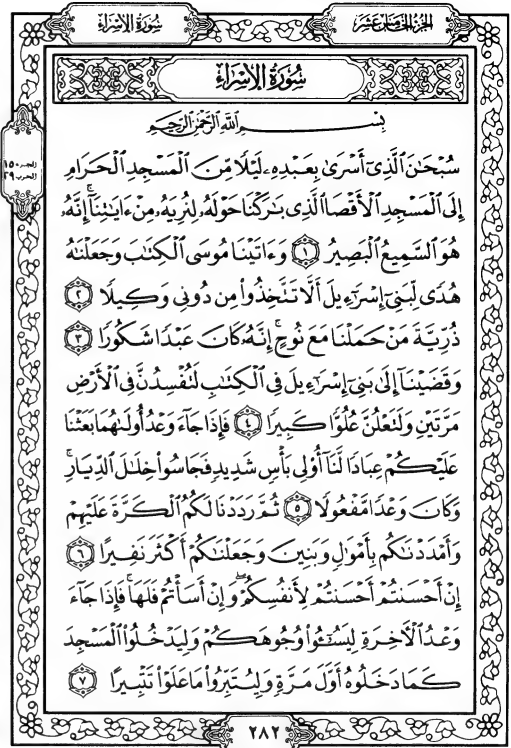 سُورَةُ الإِسْرَاءِ
الجُزْءُ الخَامِسَ عَشَرَ
سُورَةُ الإِسْرَاءِ
بِسْمِ ٱللَّهِ ٱلرَّحْمَٰنِ ٱلرَّحِيمِ
الجزء ١٥
الحزب ٢٩
سُبْحَٰنَ ٱلَّذِىٓ أَسْرَىٰ بِعَبْدِهِۦ لَيْلًا مِّنَ ٱلْمَسْجِدِ ٱلْحَرَامِ
إِلَى ٱلْمَسْجِدِ ٱلْأَقْصَا ٱلَّذِى بَٰرَكْنَا حَوْلَهُۥ لِنُرِيَهُۥ مِنْ ءَايَٰتِنَآ ۚ إِنَّهُۥ
هُوَ ٱلسَّمِيعُ ٱلْبَصِيرُ ١ وَءَاتَيْنَا مُوسَى ٱلْكِتَٰبَ وَجَعَلْنَٰهُ
هُدًى لِّبَنِىٓ إِسْرَٰٓءِيلَ أَلَّا تَتَّخِذُوا۟ مِن دُونِى وَكِيلًا ٢
ذُرِّيَّةَ مَنْ حَمَلْنَا مَعَ نُوحٍ ۚ إِنَّهُۥ كَانَ عَبْدًا شَكُورًا ٣
وَقَضَيْنَآ إِلَىٰ بَنِىٓ إِسْرَٰٓءِيلَ فِى ٱلْكِتَٰبِ لَتُفْسِدُنَّ فِى ٱلْأَرْضِ
مَرَّتَيْنِ وَلَتَعْلُنَّ عُلُوًّا كَبِيرًا ٤ فَإِذَا جَآءَ وَعْدُ أُولَىٰهُمَا بَعَثْنَا
عَلَيْكُمْ عِبَادًا لَّنَآ أُو۟لِى بَأْسٍ شَدِيدٍ فَجَاسُوا۟ خِلَٰلَ ٱلدِّيَارِ ۚ
وَكَانَ وَعْدًا مَّفْعُولًا ٥ ثُمَّ رَدَدْنَا لَكُمُ ٱلْكَرَّةَ عَلَيْهِمْ
وَأَمْدَدْنَٰكُم بِأَمْوَٰلٍ وَبَنِينَ وَجَعَلْنَٰكُمْ أَكْثَرَ نَفِيرًا ٦
إِنْ أَحْسَنتُمْ أَحْسَنتُمْ لِأَنفُسِكُمْ ۖ وَإِنْ أَسَأْتُمْ فَلَهَا ۚ فَإِذَا جَآءَ
وَعْدُ ٱلْأَخِرَةِ لِيَسُـۥٓـُٔوا۟ وُجُوهَكُمْ وَلِيَدْخُلُوا۟ ٱلْمَسْجِدَ
كَمَا دَخَلُوهُ أَوَّلَ مَرَّةٍ وَلِيُتَبِّرُوا۟ مَا عَلَوْا۟ تَتْبِيرًا ٧
٢٨٢